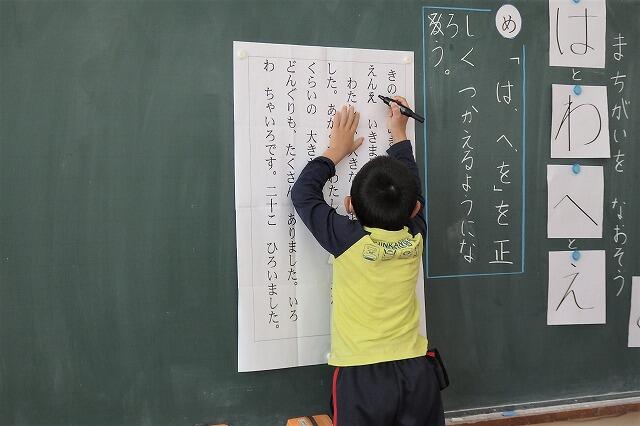 まちがいを なおそう
は
と
わ
へ
と
え
め
「は、へ、を」を正
しく つかえるようにな
ろう。
きの
えんえ いきま
わた 大き
した。あか わたし
くらいの 大き
どんぐりも、たくさん ありました。いろ
わ ちゃいろです。二十こ ひろいました。